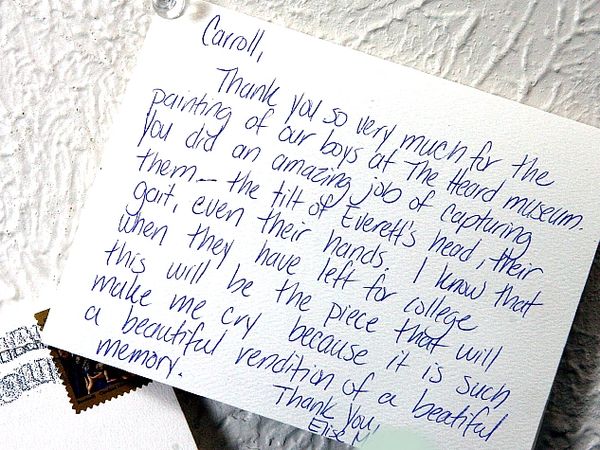 Carroll,
Thank you so very much for the
painting of our boys at The Heard museum.
You did an amazing job of capturing
them— the tilt of Everett's head, their
gait, even their hands. I know that
when they have left for college
this will be the piece that will
make me cry because it is such
a beautiful rendition of a beatiful
memory.
Thank you,
Elise M